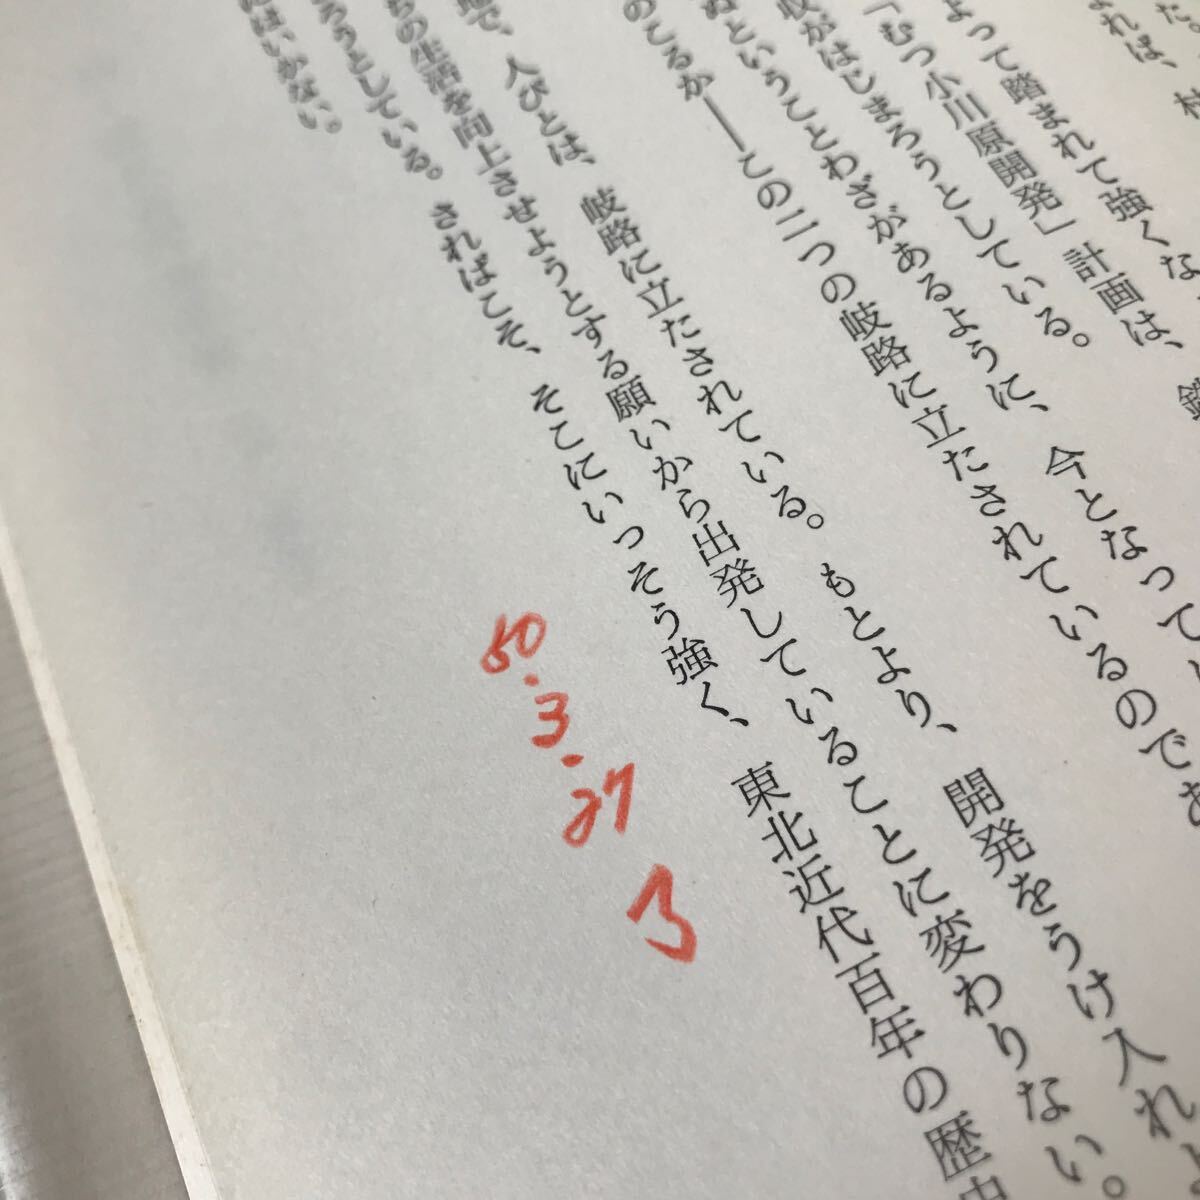 た。
よれば、村
よって踏まれて強くな
「むつ小川原開発」計画は、
収がはじまろうとしている。
ぬということわざがあるように、今となって
のこるか――この二つの岐路に立たされているのであ
地で、人びとは、岐路に立たされている。もとより、開発をうけ入れ
ちの生活を向上させようとする願いから出発していることに変わりない。
ろうとしている。さればこそ、そこにいっそう強く、東北近代百年の歴史
はいかない。
50.3.27 了